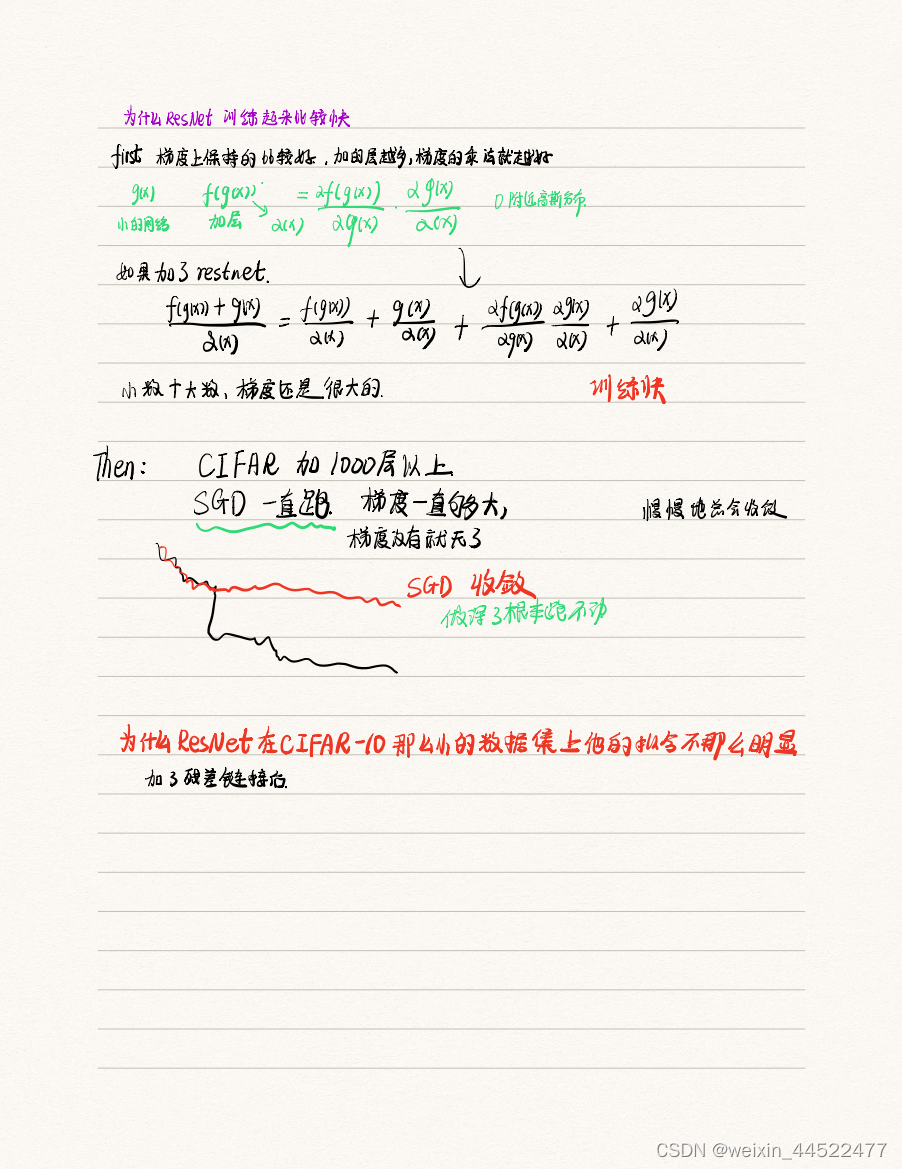 为什么 ResNet 训练起来比较快
first 梯度上保持的比较好，加的层越多，梯度的乘法就越好
g(x) f(g(x)) = ∂f(g(x))/∂g(x) · ∂g(x)/∂(x) 0附近高斯分布.
小的网络 加层 ∂(x)
如果加了 restnet.
f(g(x)) + g(x)/∂(x) = f(g(x))/∂(x) + g(x)/∂(x) + ∂f(g(x))/∂g(x) ∂g(x)/∂(x) + ∂g(x)/∂(x)
小数十大数，梯度还是很大的. 训练快
Then: CIFAR 加1000层以上.
SGD 一直跑. 梯度一直够大, 慢慢地总会收敛
梯度没有就无了
SGD 收敛
做深了根本跑不动
为什么 ResNet 在CIFAR-10 那么小的数据集上他的拟合不那么明显
加了残差链接后.
CSDN @weixin_44522477